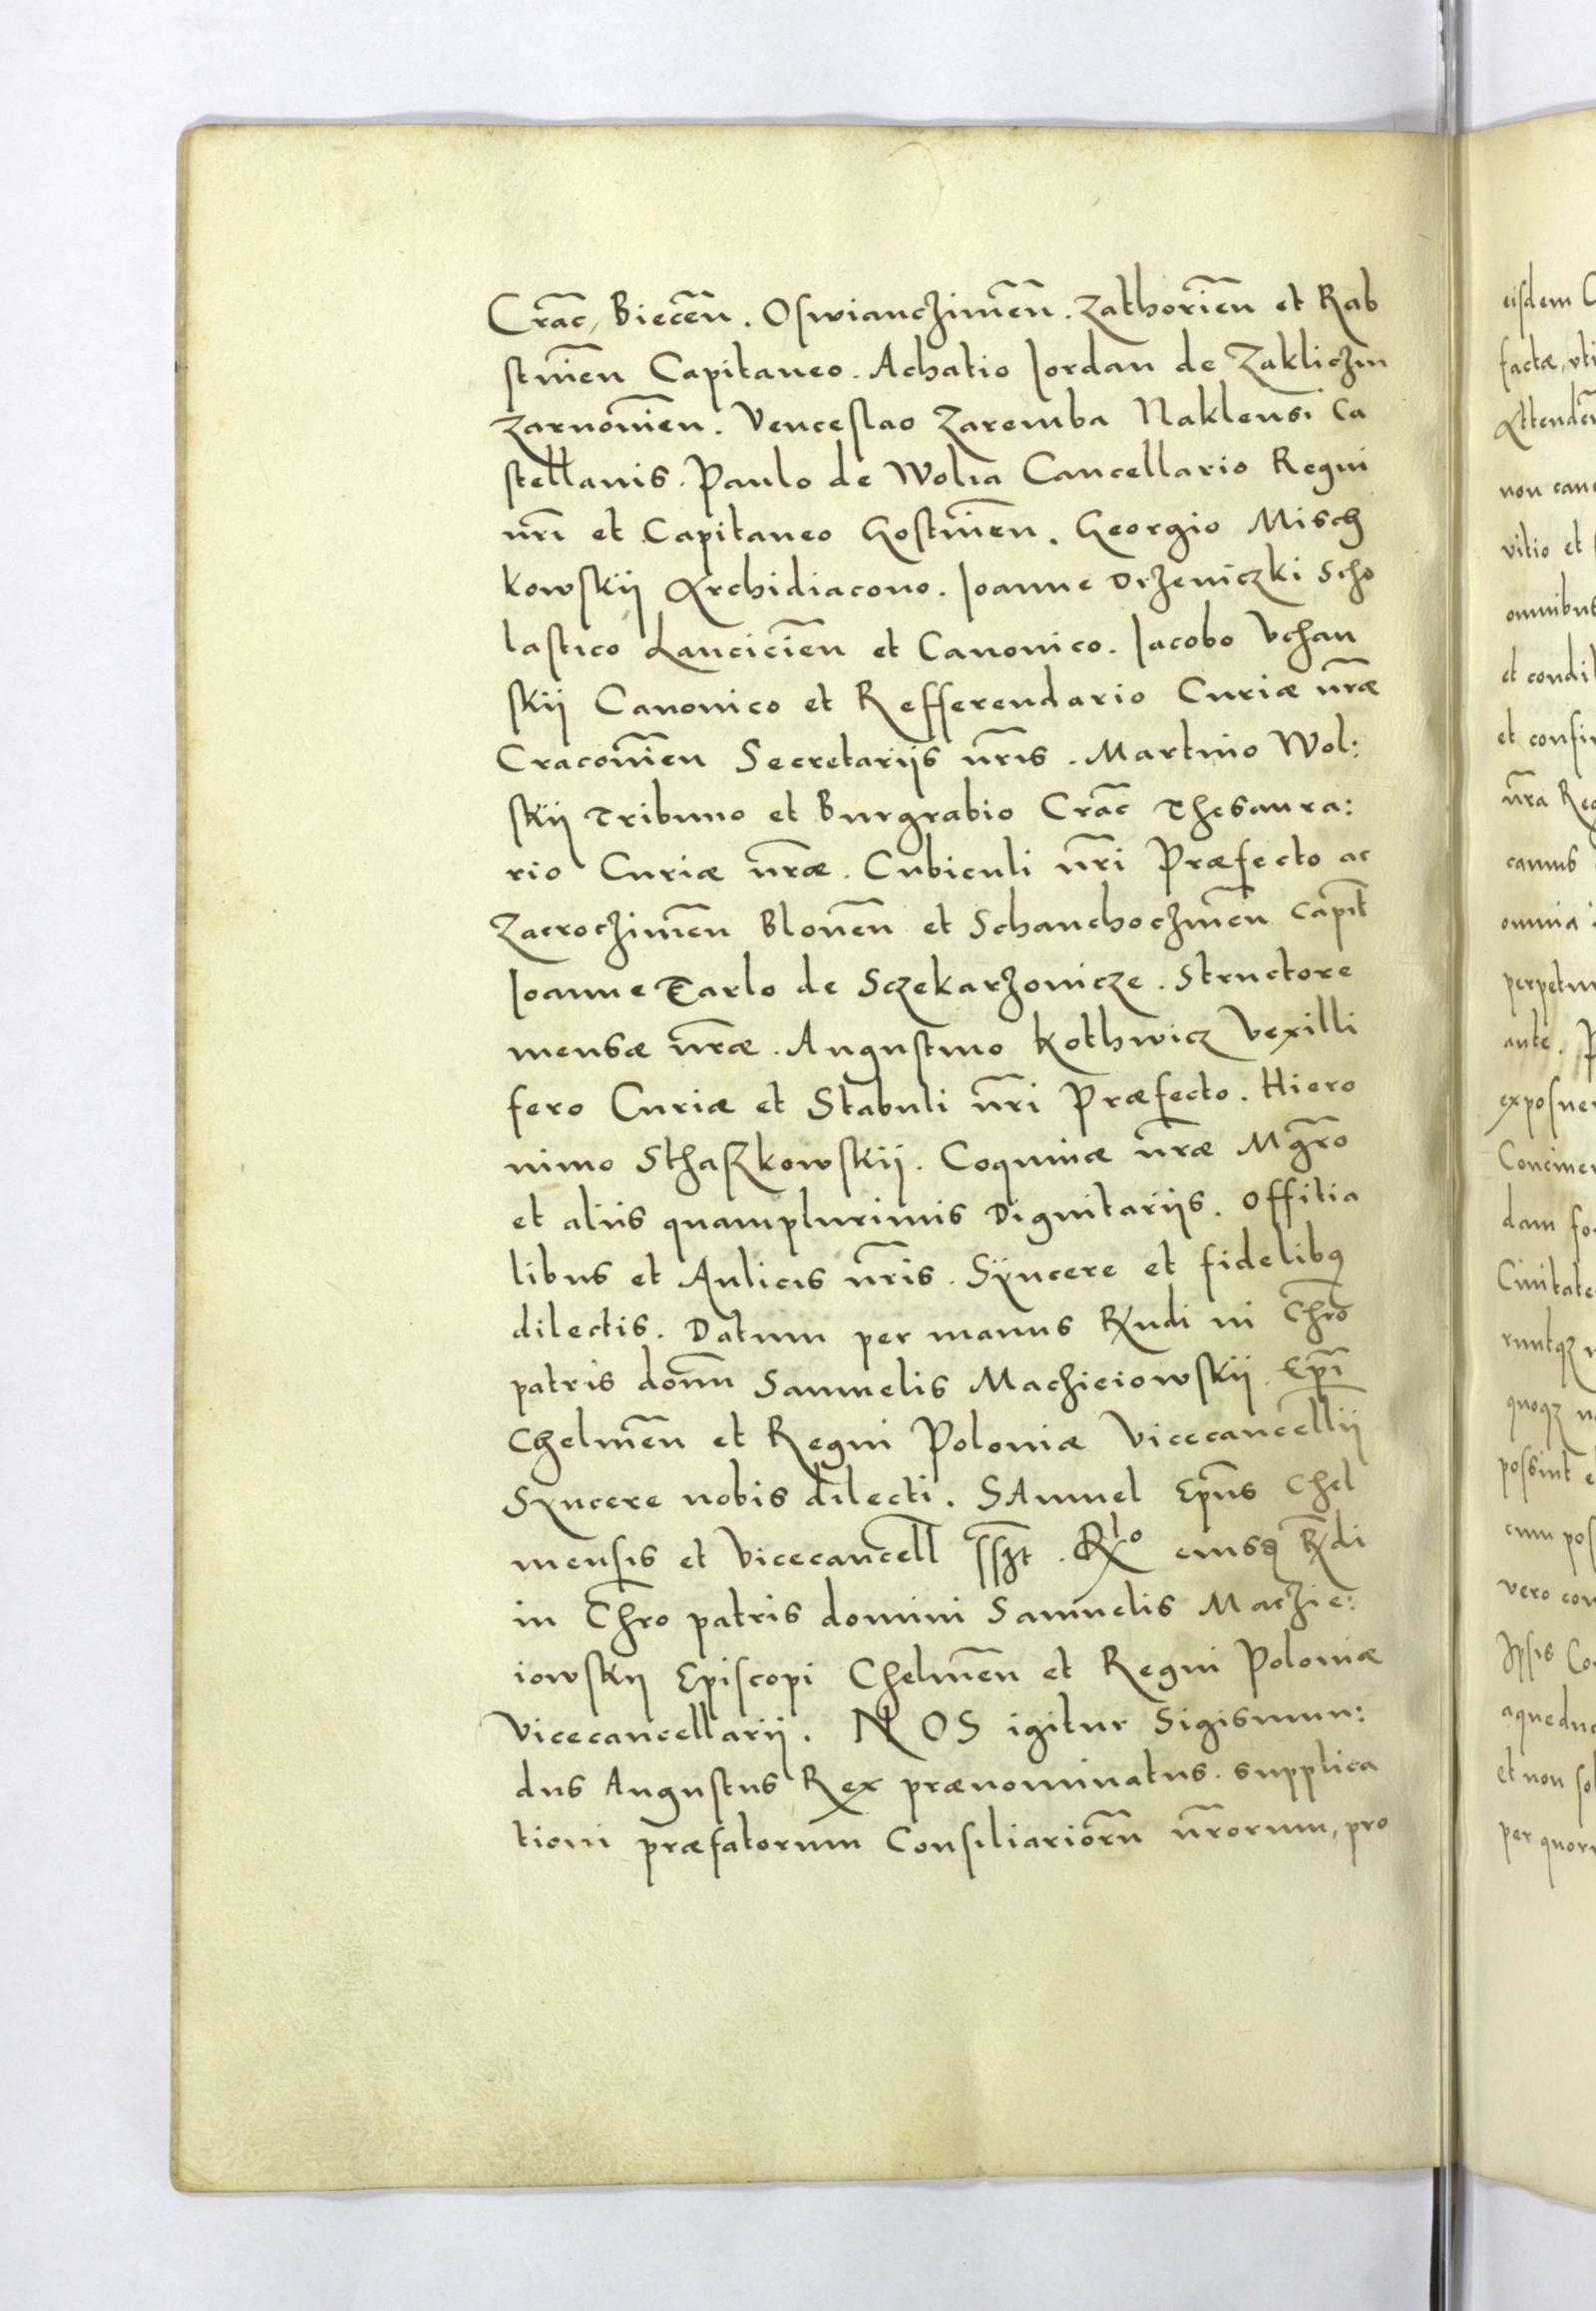 Crac̄, Biecen̄. Oswianczimen̄. Zathorien̄ et Rab
stinen̄ Capitaneo. Achatio Iordan de Zakliczin
Zarnovien̄. Venceslao Zaremba Naklensi Ca
stellanis. Paulo de Wolia Cancellario Regni
nr̄i et Capitaneo Gostinen̄. Georgio Misch
kowskij Archidiacono. Ioanne Drzeniczki Scho
lastico Lancicien̄ et Canonico. Iacobo Vchan
skij Canonico et Refferendario Curiæ nr̄æ
Cracovien̄ Secretarijs nr̄is. Martino Wol:
skij Tribuno et Burgrabio Crac̄ Thesaura:
rio Curiæ nr̄æ. Cubiculi nr̄i Præfecto ac
Zacroczimen̄ Blonen̄ et Schanchoczinen̄ Capit̄
Ioanne Tarlo de Sczekarzovicze. Structore
mensæ nr̄æ. Augustino Kothwicz Vexilli
fero Curiæ et Stabuli nr̄i Præfecto. Hiero
nimo Sthaszkowskij. Coquinæ nr̄æ Mgr̄o
et aliis quamplurimis Dignitarijs. Offitia
libus et Aulicis nr̄is. Sÿncere et fidelibꝰ
dilectis. Datum per manus Rx̄ndi in Chr̄o
patris domīn Samuelis Macziciowskij. Ep̄i
Chelmen̄ et Regni Poloniæ Vicecancell̄ij
Syncere nobis dilecti. SAmuel Ep̄us Chel
mensis et Vicecancell̄ sszt̄. Rlo eiusdꝫ Rx̄di
in Chr̄o patris domini Samuelis Maczie:
iowskij Episcopi Chelmen̄ et Regni Poloniæ
Vicecancellarij. NOS igitur Sigismun:
dus Augustus Rex prænominatus. supplica
tioni præfatorum Consiliarior̄u nr̄orum, pro
eisdem
factæ, vti
Attenden̄
non canc
vitio et
omnibus
et condit
et confir
nr̄a Reg
camus
omnia
perpetuu
ante.
exposuer
Concives
dam
Civitate
runtqꝫ
quoqꝫ
possint
cum pos
vero con
Ipsis Co
aqueduc
et non so
per quoru